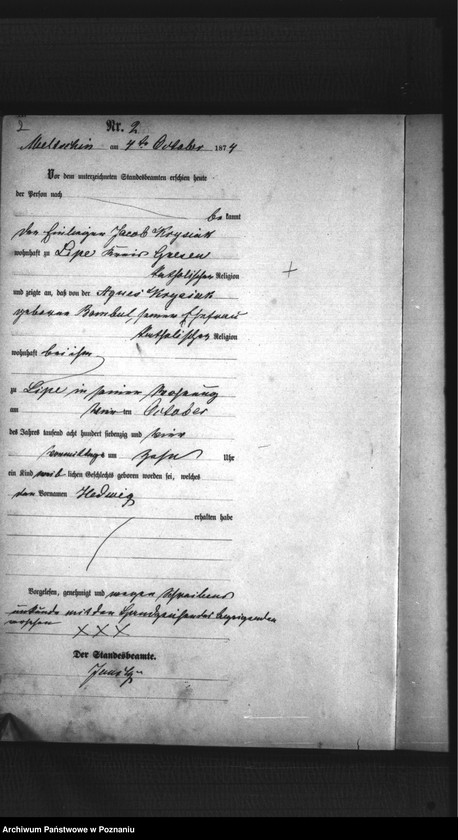 2
Nr. 2
Meltschin am 4ten October 1874
Vor dem unterzeichneten Standesbeamten erschien heute
der Person nach
be kannt
der Einlieger Jacob Krysiak
wohnhaft zu Lipe Kreis Gnesen
katholischer Religion
und zeigte an, daß von der Agnes Krysiak
geborene Bambul, seiner Ehefrau
katholischer Religion
wohnhaft bei ihm
zu Lipe in seiner Wohnung
am ten October
des Jahres tausend acht hundert siebenzig und vier
vormittags um zehn Uhr
ein Kind weib lichen Geschlechts geboren worden sei, welches
den Vornamen Hedwig
erhalten habe
Vorgelesen, genehmigt und wegen Schreibens
unkunde mit den Handzeichen des Anzeigenden
versehen
X X X
Der Standesbeamte.
Archiwum Państwowe w Poznaniu